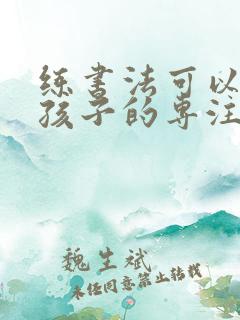 练书法可以
孩子的专注
魏生斌
未经同意禁止转载